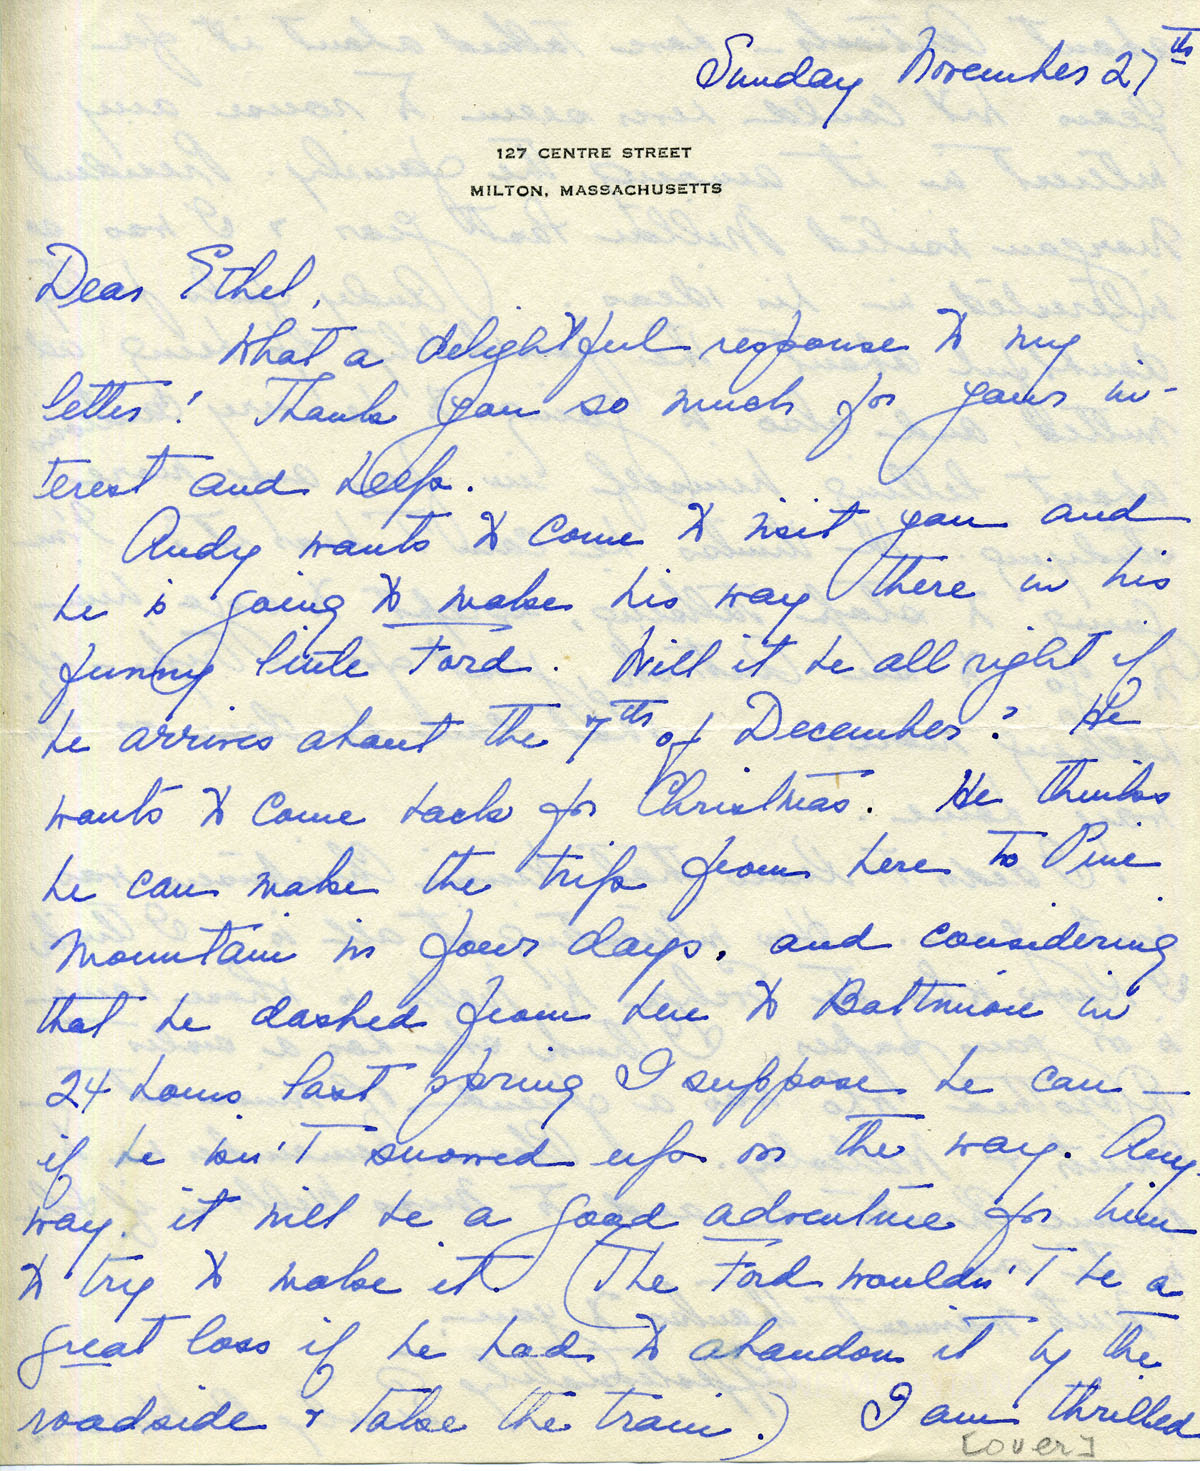 Sunday November 27th
127 CENTRE STREET
MILTON, MASSACHUSETTS
Dear Ethel,
What a delightful response to my
letter! Thank you so much for your in-
terest and help.
Andy wants to come to visit you and
he is going to make his way there in his
funny little Ford. Will it be all right if
he arrives about the 7th of December? He
wants to come back for Christmas. He thinks
he can make the trip from here to Pine
Mountain in four days, and considering
that he dashed from here to Baltimore in
24 hours last spring I suppose he can—
if he isn't snowed up on the way. Any-
way, it will be a good adventure for him
to try to make it. (The Ford wouldn't be a
great loss if he had to abandon it by the
roadside & take the train.) I am thrilled
[over]